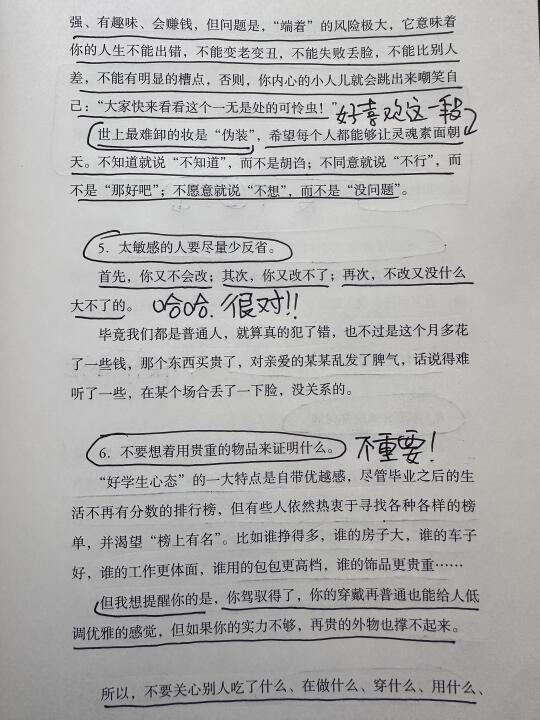 强、有趣味、会赚钱，但问题是，“端着”的风险极大，它意味着
你的人生不能出错，不能变老变丑，不能失败丢脸，不能比别人
差，不能有明显的槽点，否则，你内心的小人儿就会跳出来嘲笑自
己：“大家快来看看这个一无是处的可怜虫！”
好喜欢这一段
世上最难卸的妆是“伪装”，希望每个人都能够让灵魂素面朝
天。不知道就说“不知道”，而不是胡诌；不同意就说“不行”，而
不是“那好吧”；不愿意就说“不想”，而不是“没问题”。
5. 太敏感的人要尽量少反省。
首先，你又不会改；其次，你又改不了；再次，不改又没什么
大不了的。
哈哈.很对!!
毕竟我们都是普通人，就算真的犯了错，也不过是这个月多花
了一些钱，那个东西买贵了，对亲爱的某某乱发了脾气，话说得难
听了一些，在某个场合丢了一下脸，没关系的。
6. 不要想着用贵重的物品来证明什么。
不重要!
“好学生心态”的一大特点是自带优越感，尽管毕业之后的生
活不再有分数的排行榜，但有些人依然热衷于寻找各种各样的榜
单，并渴望“榜上有名”。比如谁挣得多，谁的房子大，谁的车子
好，谁的工作更体面，谁用的包包更高档，谁的饰品更贵重……
但我想提醒你的是，你驾驭得了，你的穿戴再普通也能给人低
调优雅的感觉，但如果你的实力不够，再贵的外物也撑不起来。
所以，不要关心别人吃了什么、在做什么、穿什么、用什么、